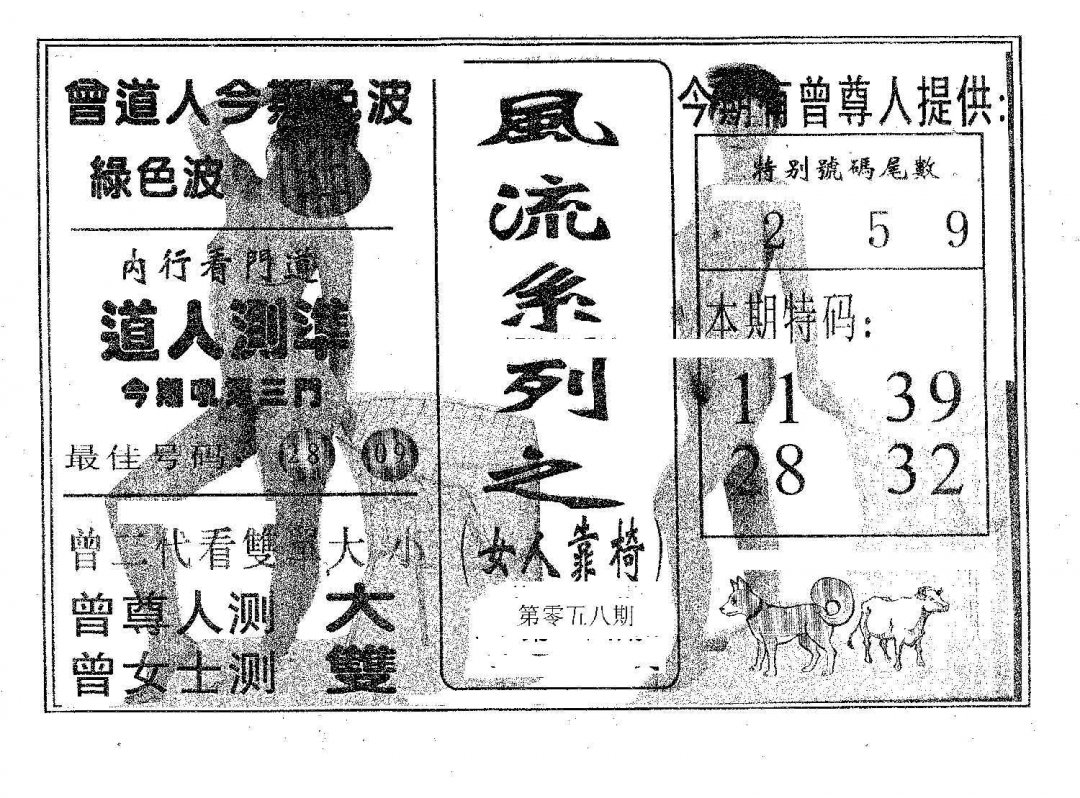 曾道人今期色波
綠色波
内行看門道
道人測準
今期吼死三門
最佳号码: 28 09
曾二代看雙單大小
曾尊人测 大
曾女士测 雙
風流系列之
(女人靠椅)
第零五八期
今期有曾尊人提供:
特别號碼尾數
2 5 9
本期特码:
11 39
28 32